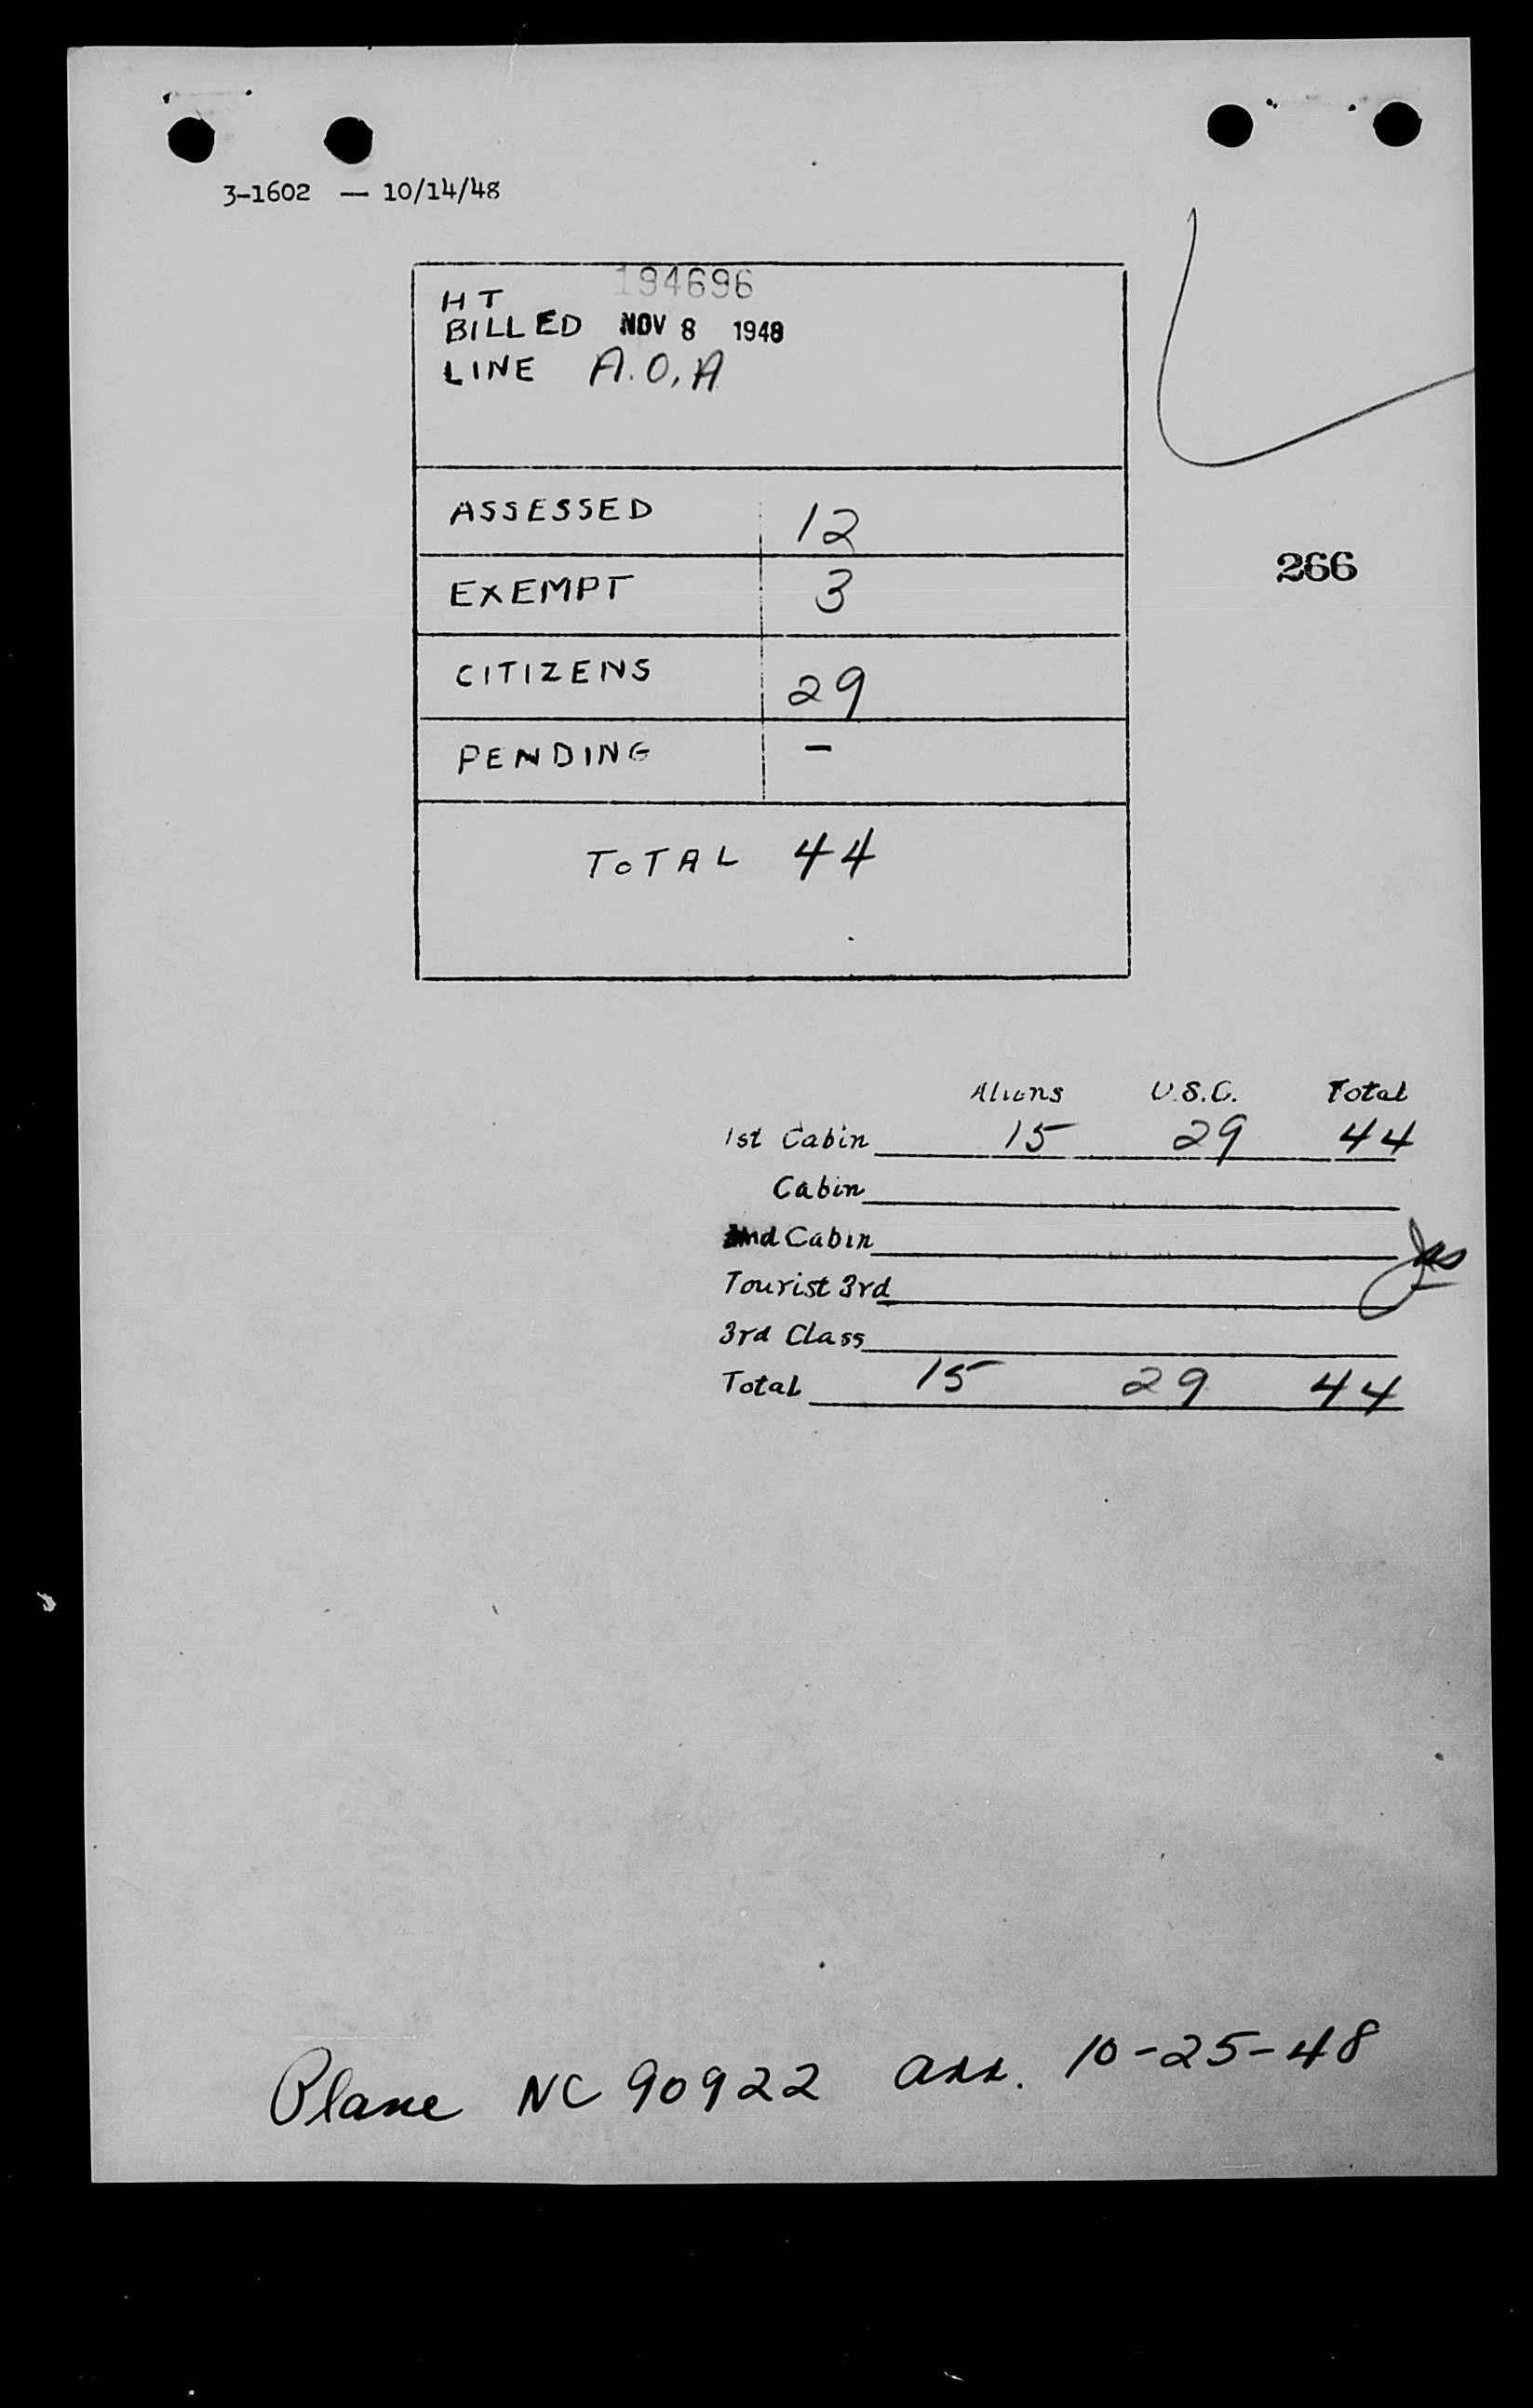 3-1602 — 10/14/48
194696
HT
BILLED NOV 8 1948
LINE A.O.A
ASSESSED 12
EXEMPT 3
266
CITIZENS 29
PENDING –
TOTAL 44
Aliens U.S.C. Total
1st Cabin 15 29 44
Cabin
2nd Cabin
Tourist 3rd
3rd Class
Total 15 29 44
Plane NC 90922 arr. 10-25-48